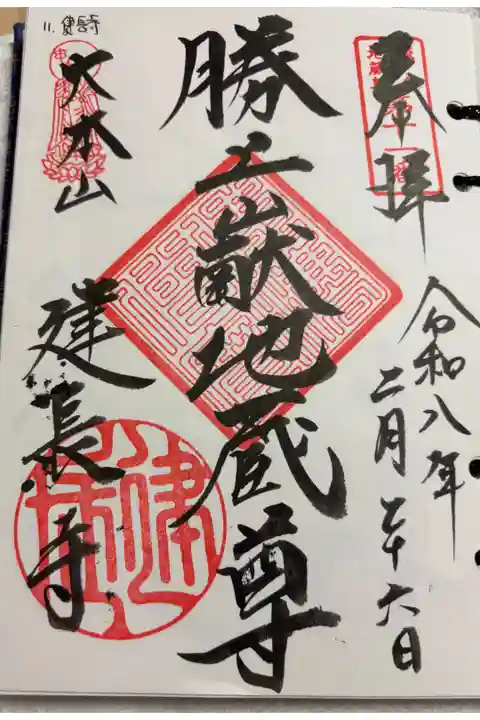 奉拝
令和八年
二月二十六日
勝上嶽地蔵尊
大本山
建長寺
11. 建長寺